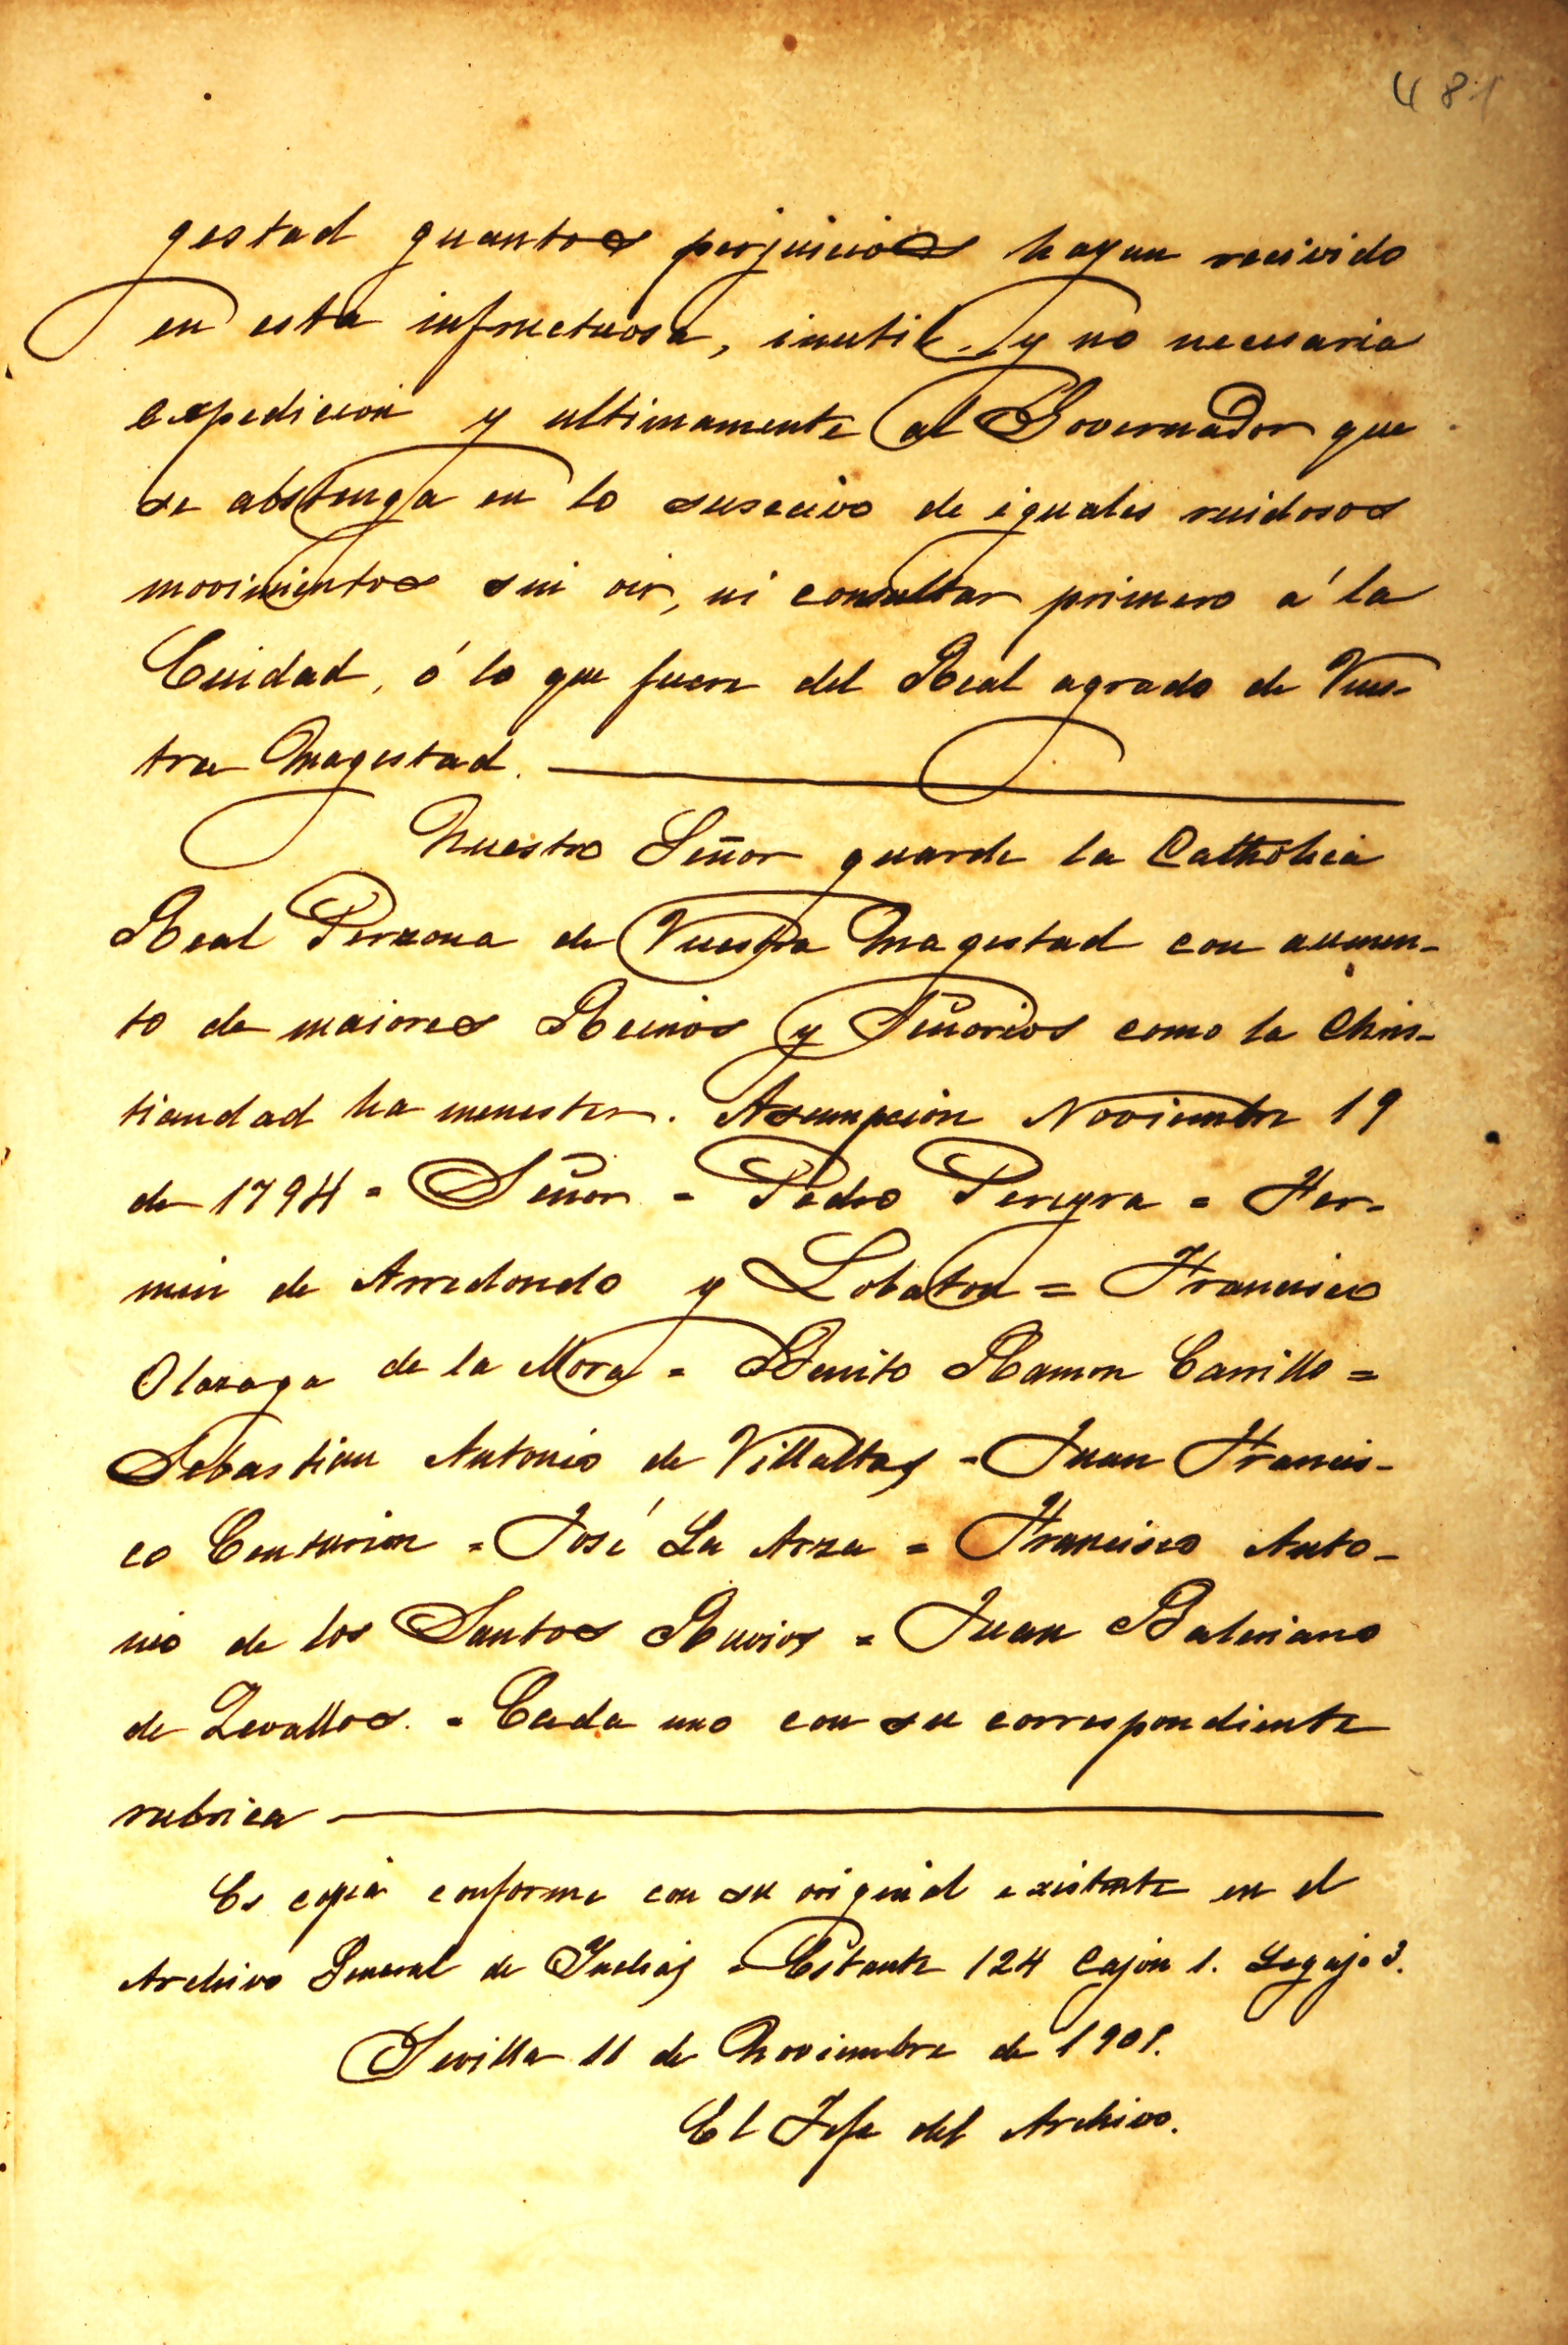 481
gestad quantos perjuicios hayan recivido
en esta infructuosa, inutil, y no necesaria
expedicion y ultimamente al Governador que
se abstenga en lo suscecivo de iguales ruidosos
movimientos sin oir, ni consultar primero á la
Ciudad, ó lo que fuere del Real agrado de Vues-
tra Magestad.
Nuestro Señor guarde la Catholica
Real Persona de Vuestra Magestad con aumen-
to de maiores Reinos y Señorios como la Chris-
tiandad ha menester. Assumpcion Noviembre 19
de 1794 = Señor = Pedro Pereyra = Fer-
min de Arredondo y Lobaton = Francisco
Olazaga de la Mora = Benito Ramon Carrillo =
Sebastian Antonio de Villalta = Juan Francis-
co Centurion = José La Arza = Francisco Anto-
nio de los Santos Ruvios = Juan Baleriano
de Zevallos. = Cada uno con su correspondiente
rubrica
Es copia conforme con su original existente en el
Archivo General de Indias = Estante 124 Cajon 1. Legajo 3.
Sevilla 11 de Noviembre de 1901.
El Jefe del Archivo.